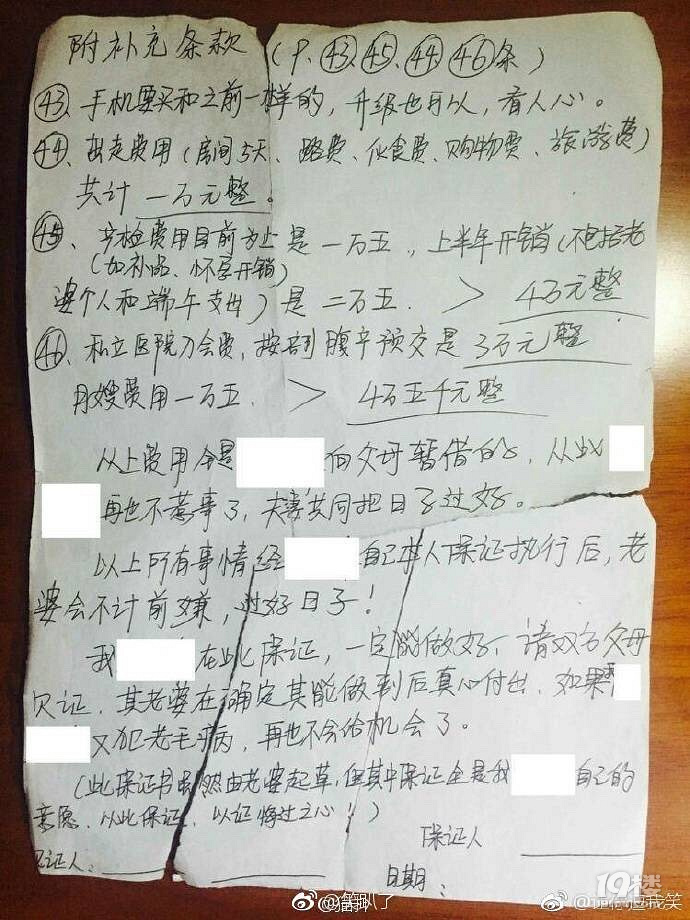 附补充条款(P. ㊸、㊺、㊹ ㊻条)
㊸、手机要买和之前一样的,升级也可以,看人心。
㊹、出走费用(房间5天、路费、伙食费、购物费、旅游费)
共计 一万元整。
㊺、产检费用目前为止是一万五,上半年开销(不包括老
(加补品、怀孕开销)
婆个人和端午支出)是二万五. > 4万元整
㊻、私立医院入会费,按剖腹产预交是3万元整
月嫂费用一万五. > 4万五千元整
以上费用全是 向父母暂借的。从此
再也不惹事了,夫妻共同把日子过好。
以上所有事情经 自己本人保证执行后,老
婆会不计前嫌,过好日子!
我 在此保证,一定能做好.请双方父母
见证.其老婆在确定其能做到后真心付出.如果
又犯老毛病,再也不会给机会了。
(此保证书虽然由老婆起草,但其中保证全是我 自己的
意愿.以此保证.以证悔过之心!)
保证人
见证人:
日期:
19楼